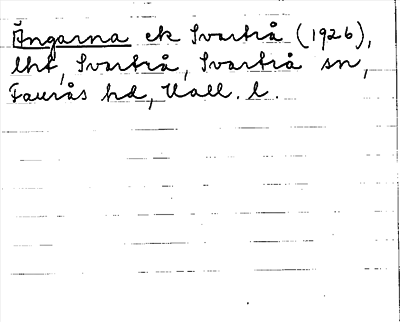 Ängarna ek Svartrå (1926),
lht, Svartrå, Svartrå sn,
Faurås hd, Hall. l.